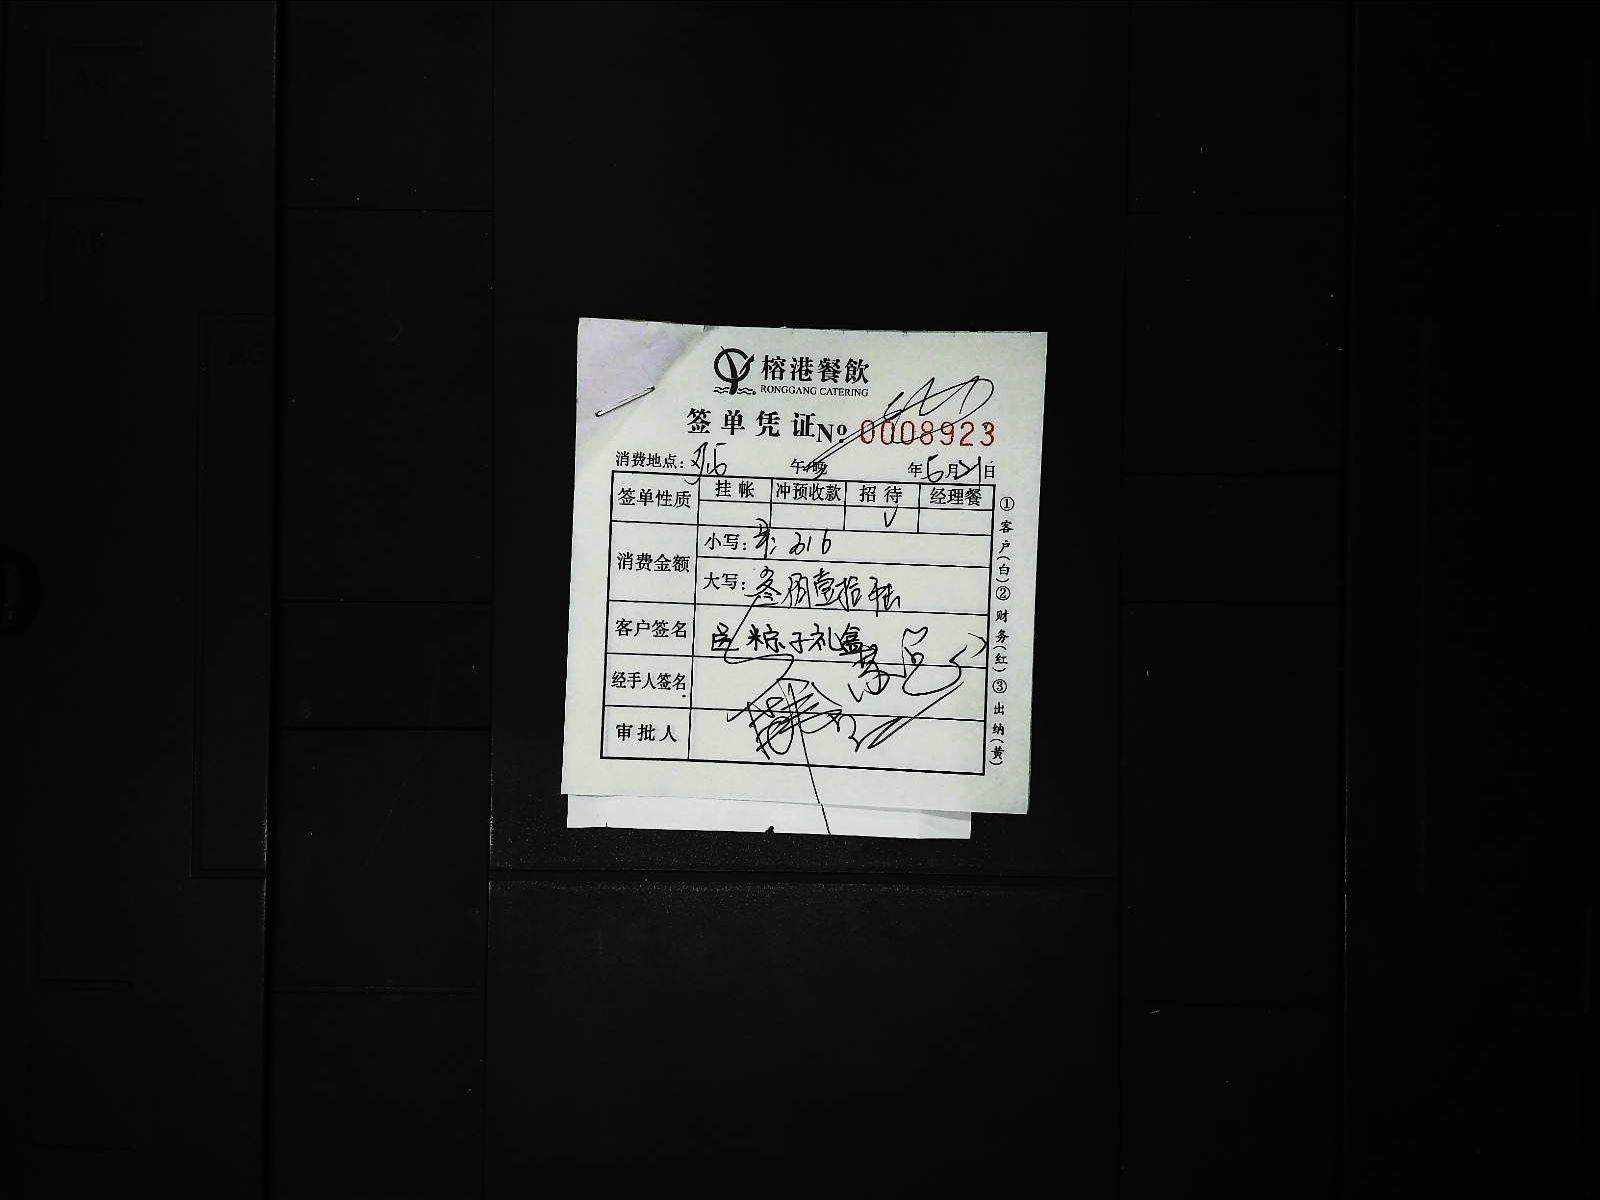 榕港餐飲
RONGGANG CATERING
签单凭证 No 0008923
消费地点: 午晚 年 5月21日
签单性质 挂帐 冲预收款 招待 经理餐
√
消费金额 小写: 316
大写: 叁佰壹拾陆
客户签名 送粽子礼盒
经手人签名
审批人
①客户(白)②财务(红)③出纳(黄)